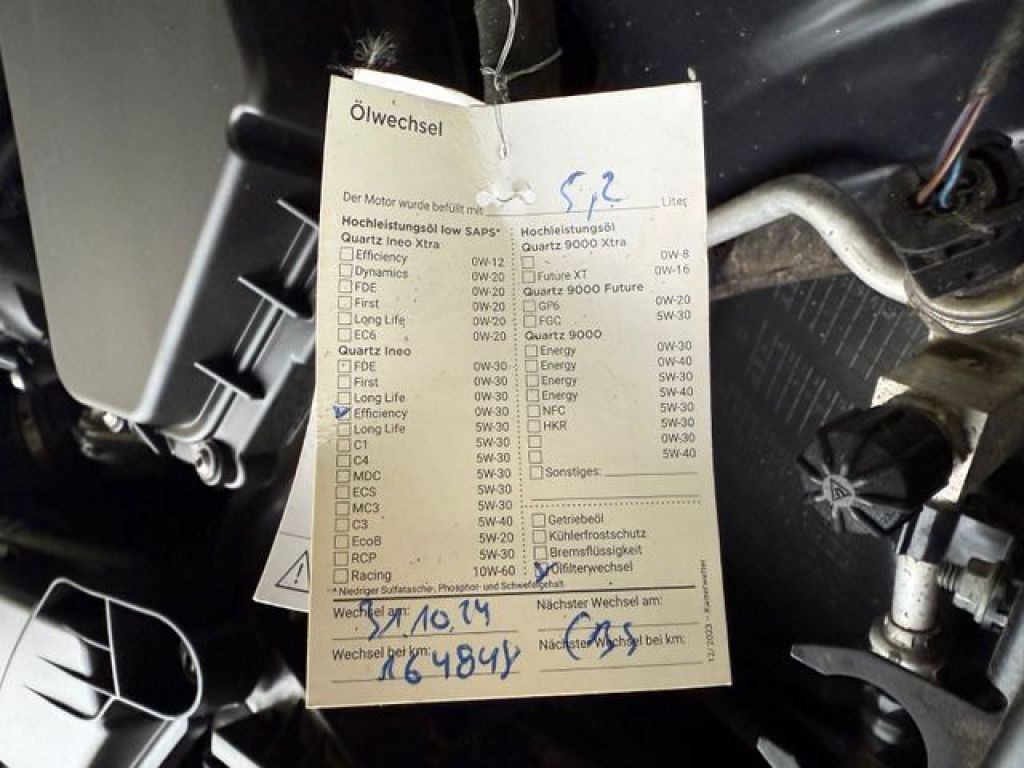 Ölwechsel
Der Motor wurde befüllt mit 5,2 Liter
Hochleistungsöl low SAPS*
Quartz Ineo Xtra
Efficiency 0W-12
Dynamics 0W-20
FDE 0W-20
First 0W-20
Long Life 0W-20
EC6 0W-20
Quartz Ineo
FDE 0W-30
First 0W-30
Long Life 0W-30
Efficiency 0W-30
Long Life 5W-30
C1 5W-30
C4 5W-30
MDC 5W-30
ECS 5W-30
MC3 5W-30
C3 5W-40
EcoB 5W-20
RCP 5W-30
Racing 10W-60
Hochleistungsöl
Quartz 9000 Xtra
0W-8
Future XT 0W-16
Quartz 9000 Future
GF6 0W-20
FGC 5W-30
Quartz 9000
Energy 0W-30
Energy 0W-40
Energy 5W-30
Energy 5W-40
NFC 5W-30
HKR 5W-30
0W-30
5W-40
Sonstiges:
Getriebeöl
Kühlerfrostschutz
Bremsflüssigkeit
Ölfilterwechsel
* Niedriger Sulfatasche-, Phosphor- und Schwefelgehalt
Wechsel am: 31.10.24
Wechsel bei km: 164848
Nächster Wechsel am:
Nächster Wechsel bei km:
12/2023 –